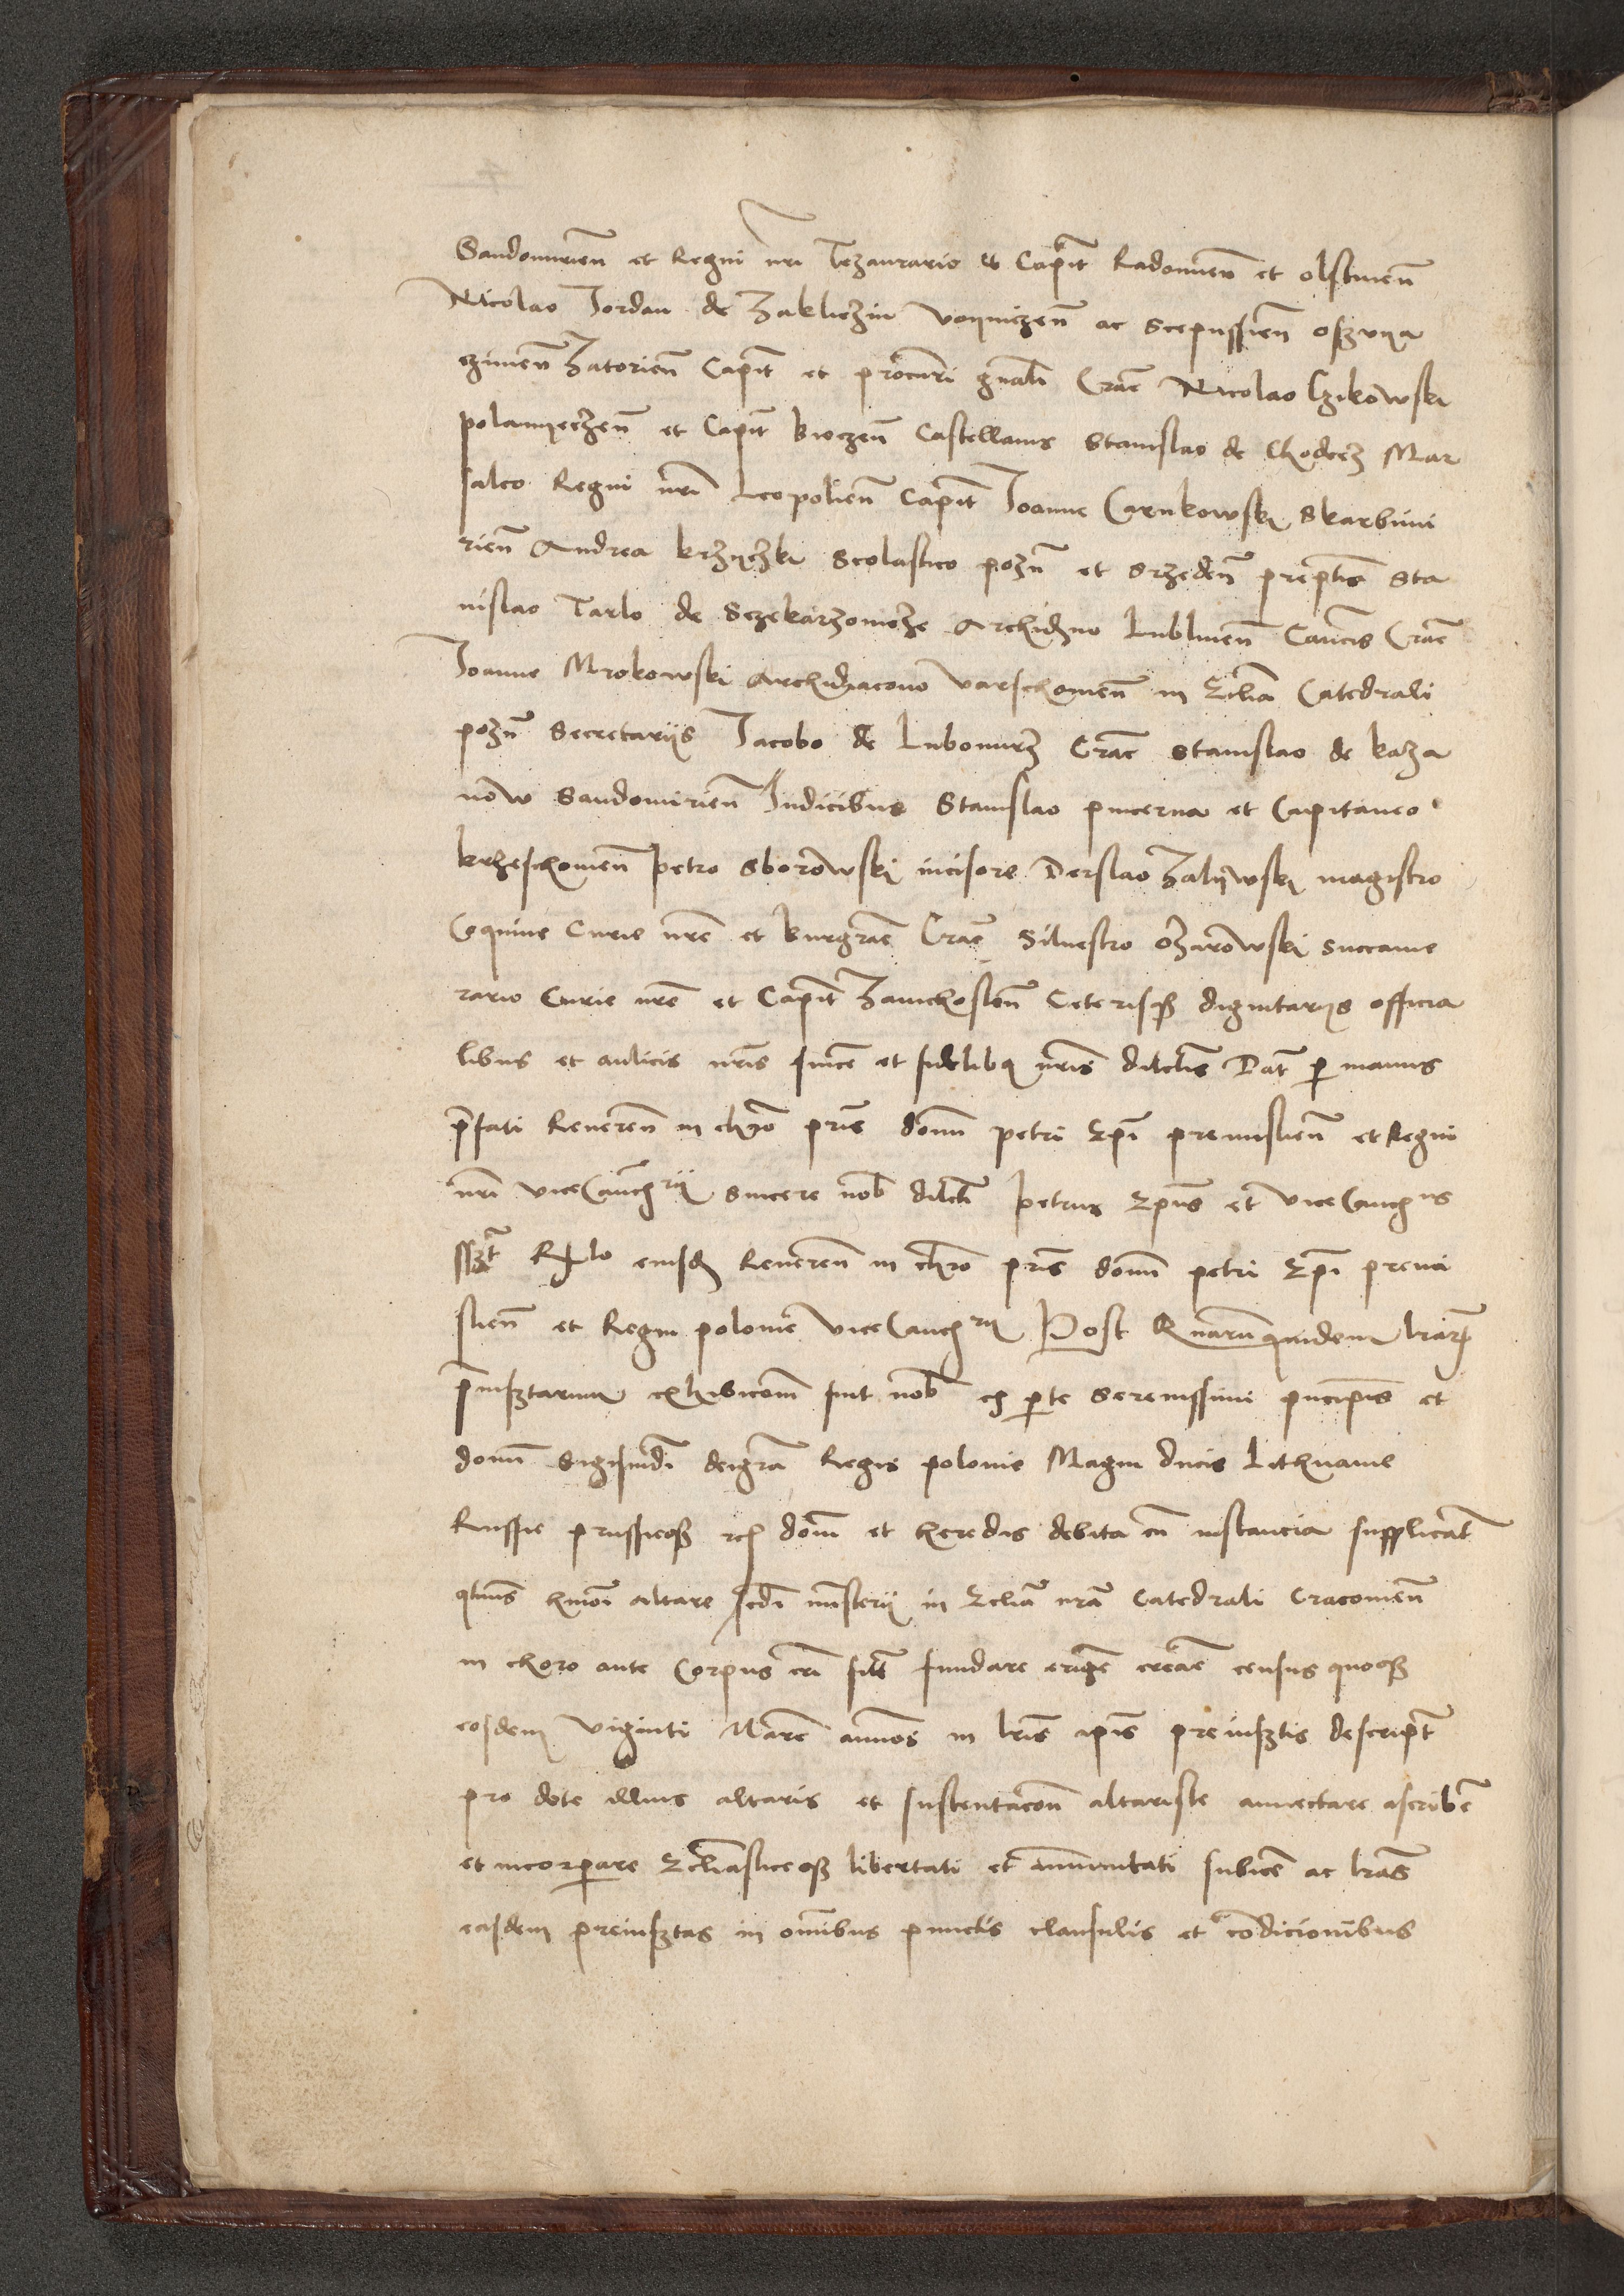 Sandomirien̄ et Regni nr̄i Tezaurario et Capit̄ Radomien̄ et olstinen̄
Nicolao Jordan de Zakliczin voyniczen̄ ac Scepussien̄ oszwya
czimen̄ Zatorien̄ Capit̄ et procur̄i gn̄ali Crac̄ Nicolao Czikowski
polanyeczen̄ et Capit̄ kyoczen̄ Castellanis Stanislao de Chodecz Mar
salco Regni nr̄i Leopolien̄ Capit̄ Joanne Carnkowski Skarbimi
rien̄ Andrea krzyczki Scolastico pozn̄ et Srzeden̄ prep̄tis Sta
nislao Tarlo de Sczekarzowicze Archidi̅no Lublinen̄ Can̄cis Crac̄
Joanne Mrokowski Archidiacono Varschouien̄ in Ecl̄ia Catedrali
pozn̄ Secretariis Jacobo de Lubomirz Crac̄ Stanislao de kaza
now Sandomirien̄ Judicibus Stanislao pincerna et Capitaneo
krzeschouien̄ Petro Sborowski incisore Derslao Zaliwski magistro
Coquine Curie nr̄e et burgrac̄ Crac̄ Siluestro Ozarowski Succame
rario Curie nr̄e et Capit̄ Zawichosten̄ Ceterisqȝ dignitariis officia
libus et aulicis nr̄is sinc̄e et fidelibꝫ nr̄is dilc̄tis Dat̄ ꝑ manus
p̄fati Reueren̄ in chr̄o pr̄is domi̅ petri Ep̄i premislien̄ et Regni
nr̄i viceCancrii sincere nob̄ dilc̄ti Petrus Ep̄us et viceCancus
sszt̄ R̄lo eiusdꝫ Reueren̄ in chr̄o pr̄is domi̅ petri Ep̄i premi
slien̄ et Regni polonie viceCancrii Post Quarūquidem lr̄arꝝ
p̄insztarum exhibicōm fuit nob̄ ex ꝑte Serenissimi pn̄cipis et
domi̅ Sigismdi̅ dei gr̄a Regis polonie Magni ducis Lithuanie
Russie prussieqȝ rc̄ domi̅ et heredis debita cū instancia supplicat̄
qt̄nus hmōi altare scdi̅ mn̄sterii in Ecl̄ia nr̄a Catedrali Cracouien̄
in choro ante Corpus cr̄i sitū fundare eriḡe crear̄e census quoqȝ
eosdem viginti Marc̄ annuos in lr̄is ip̄is preinsztis descript̄
pro dote illius altaris et sustentacōn altariste annectare ascrib̄e
et incorꝑare Ecl̄iasticeqȝ libertati et immunitati subic̄e ac lr̄as
easdem preinsztas in om̄ibus punctis clausulis et cōdicionibus